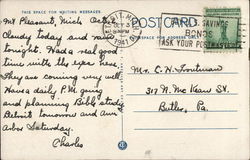 THIS SPACE FOR WRITING MESSAGES
POST CARD
Mt Pleasant, Mich. Oct 2
Cloudy today and rain
tonight. Had a real good
time with the eyes here.
They are coming very well.
Having a daily P.M. going
and planning Bible study.
Detroit tomorrow and Ann
Arbor Saturday.
Charles
OCT 3
1941
SAVINGS
BONDS
ASK YOUR POSTMASTER
Mr. C. H. Troutman
317 N. McKean St.
Butler, Pa.